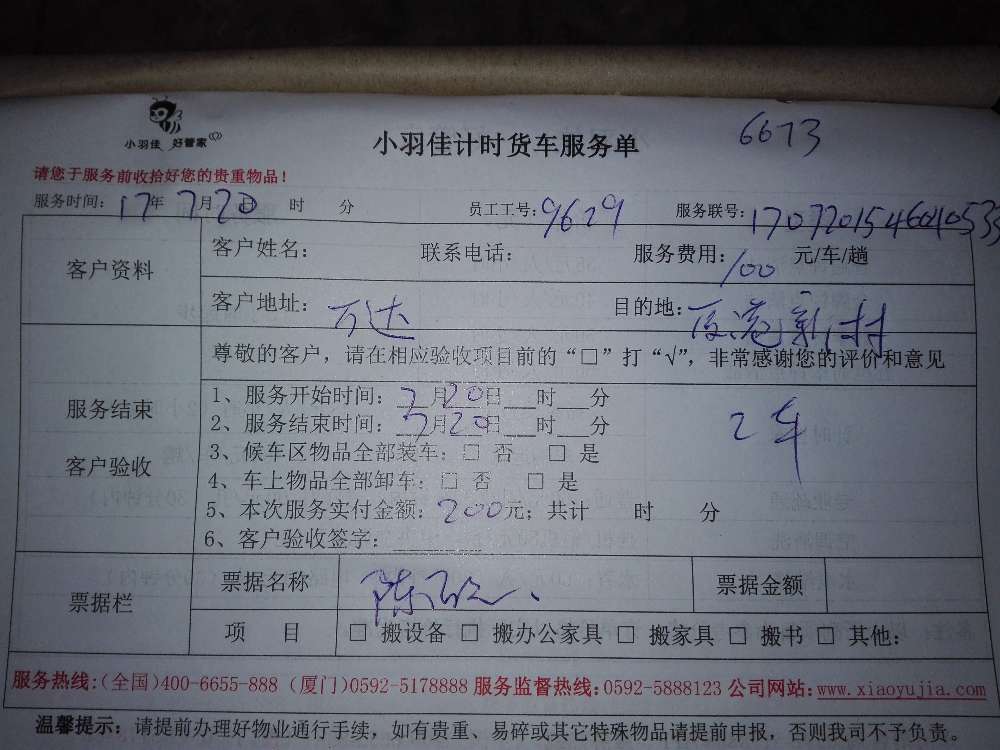 小羽佳 好管家
小羽佳计时货车服务单 6673
请您于服务前收拾好您的贵重物品！
服务时间：17年7月20日 时 分 员工工号：9629 服务联号：
客户资料
客户姓名： 联系电话： 服务费用：100元/车/趟
客户地址：万达 目的地：新村
尊敬的客户，请在相应验收项目前的“□”打“√”，非常感谢您的评价和意见
服务结束
客户验收
1、服务开始时间：7月20日__时__分
2、服务结束时间：7月20日__时__分
2车
3、候车区物品全部装车：□ 否 □ 是
4、车上物品全部卸车：□ 否 □ 是
5、本次服务实付金额：200元；共计 时 分
6、客户验收签字：
票据栏
票据名称 陈 票据金额
项 目 □ 搬设备 □ 搬办公家具 □ 搬家具 □ 搬书 □ 其他：
服务热线：(全国)400-6655-888 (厦门)0592-5178888 服务监督热线：0592-5888123 公司网站：www.xiaoyujia.com
温馨提示：请提前办理好物业通行手续，如有贵重、易碎或其它特殊物品请提前申报，否则我司不予负责。